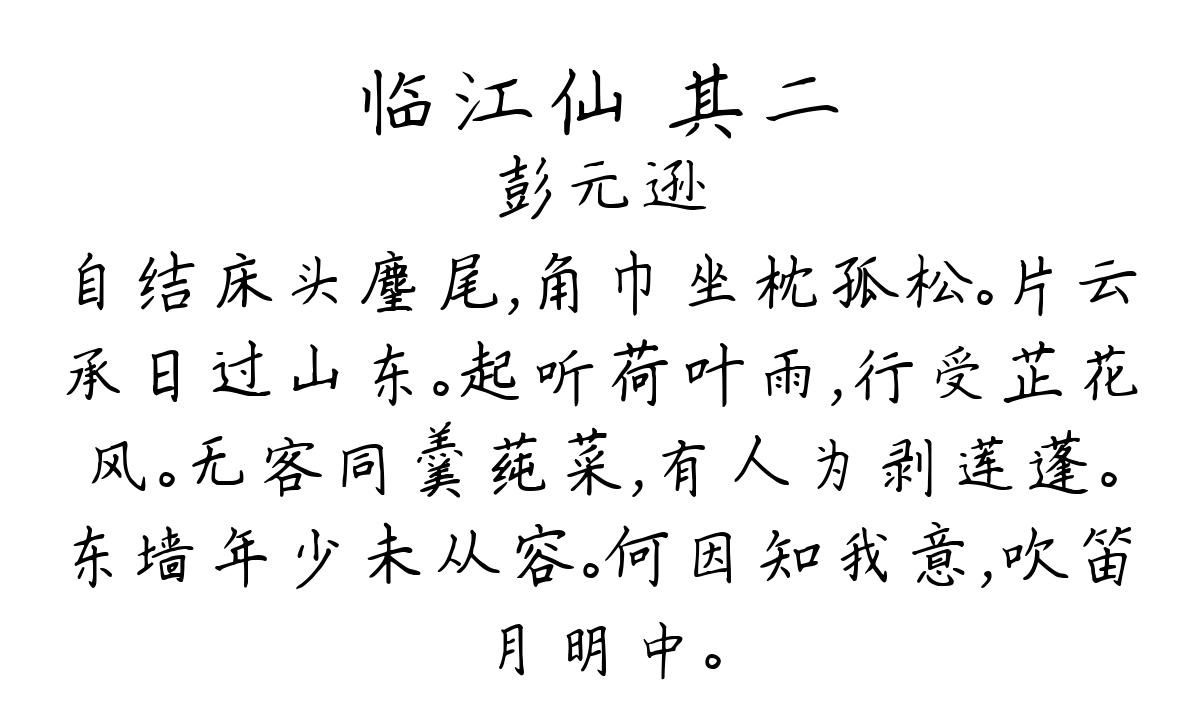 临江仙 其二
彭元逊
自结床头麈尾,角巾坐枕孤松。片云
承日过山东。起听荷叶雨,行受芷花
风。无客同羹莼菜,有人为剥莲蓬。
东墙年少未从容。何因知我意,吹笛
月明中。